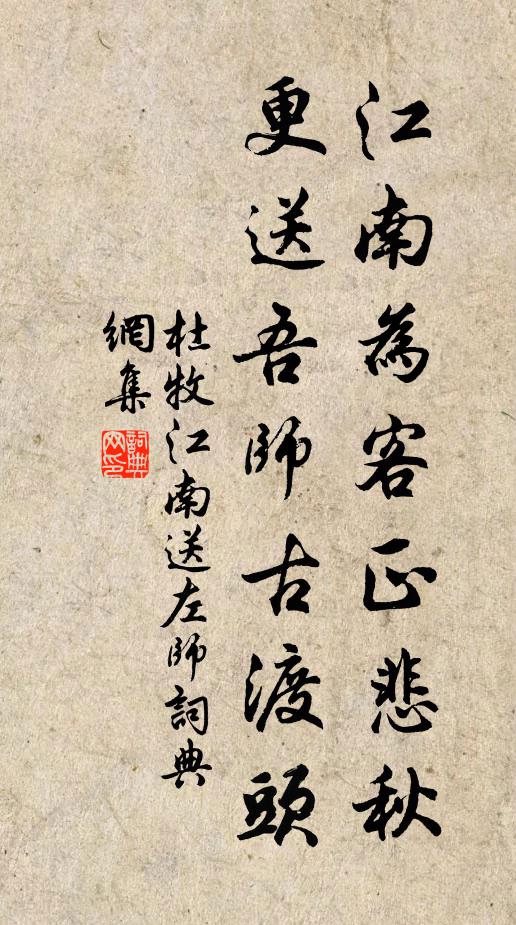 江南為客正悲秋
更送吾師古渡頭
杜牧江南送左師詞典
網集
詞典网印